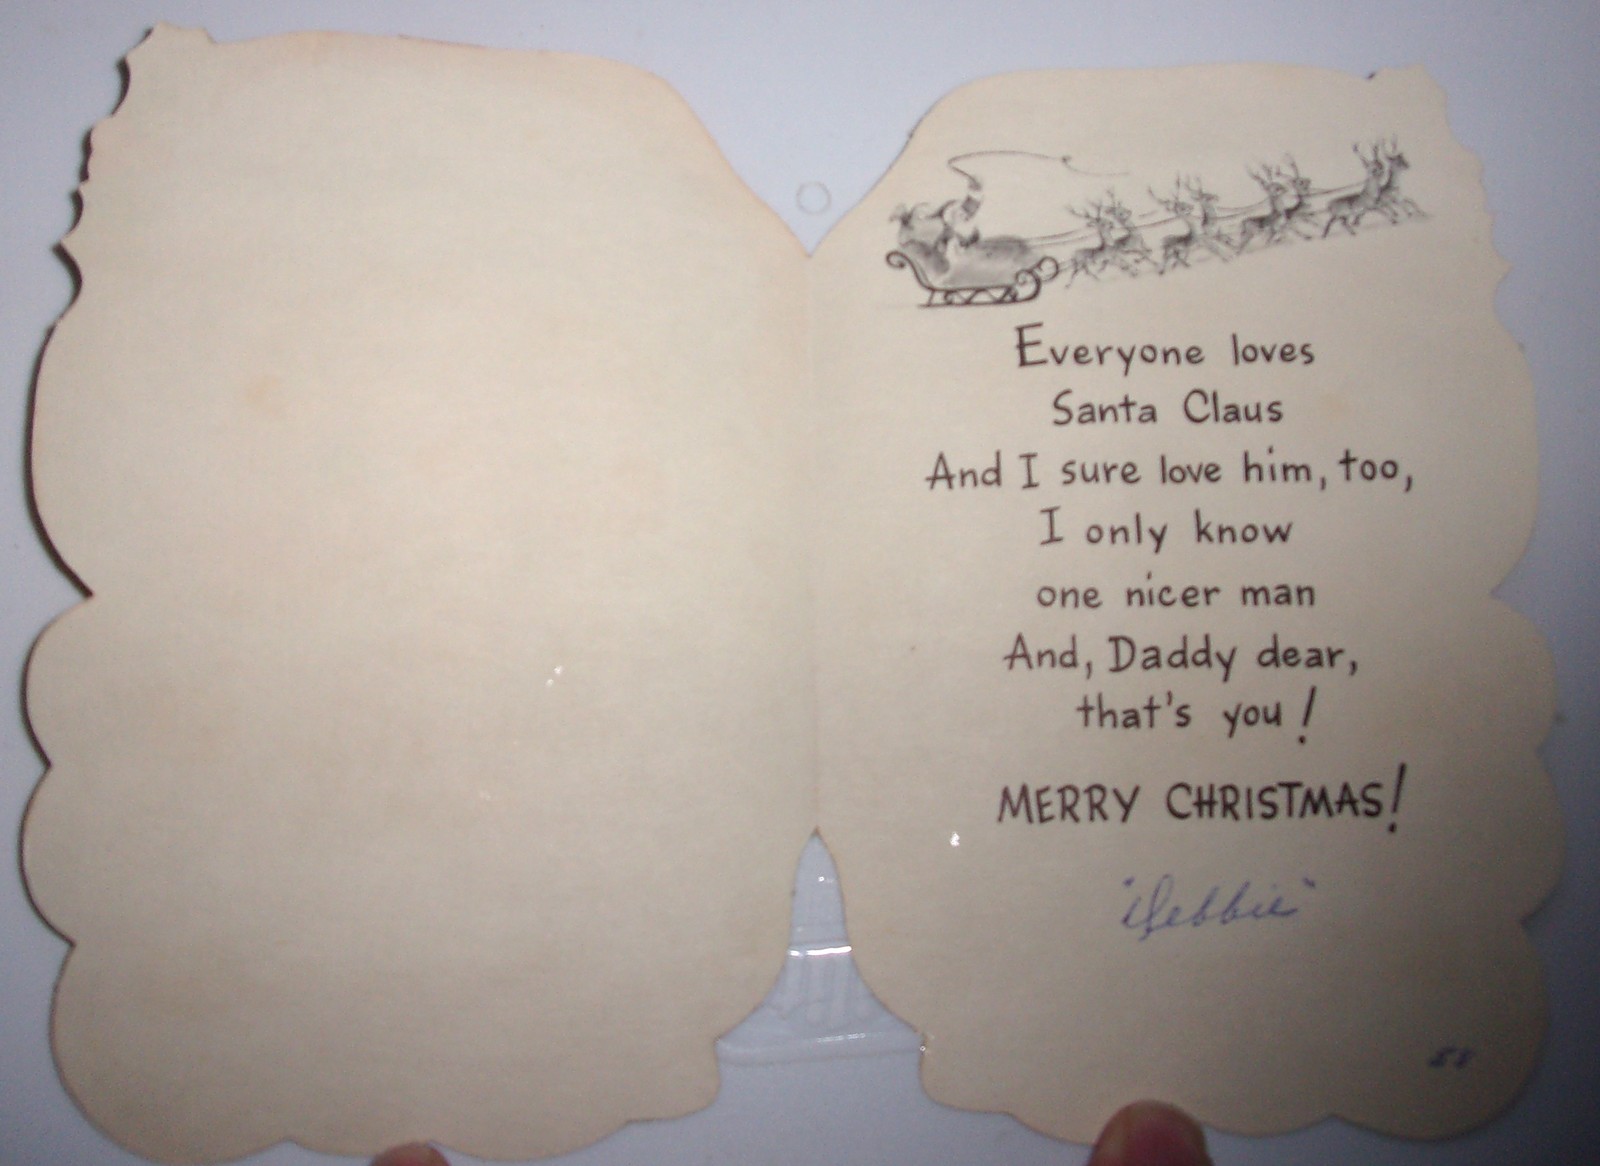 Everyone loves
Santa Claus
And I sure love him, too,
I only know
one nicer man
And, Daddy dear,
that's you!
MERRY CHRISTMAS!
"Debbie"
58